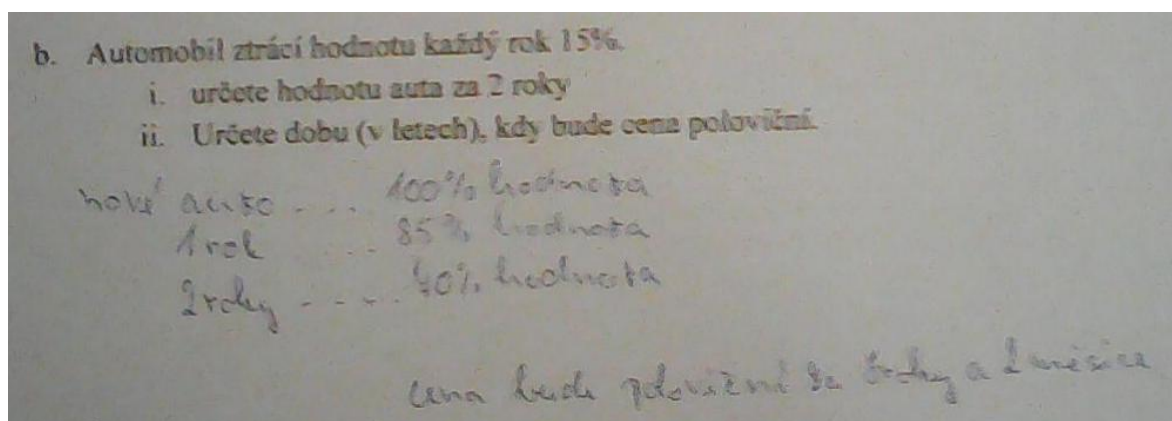 b. Automobil ztrácí hodnotu každý rok 15%.
i. určete hodnotu auta za 2 roky
ii. Určete dobu (v letech), kdy bude cena poloviční.
nové auto .... 100% hodnota
1 rok ... 85% hodnota
2 roky ..... 70% hodnota
cena bude poloviční za roky a 2 měsíce